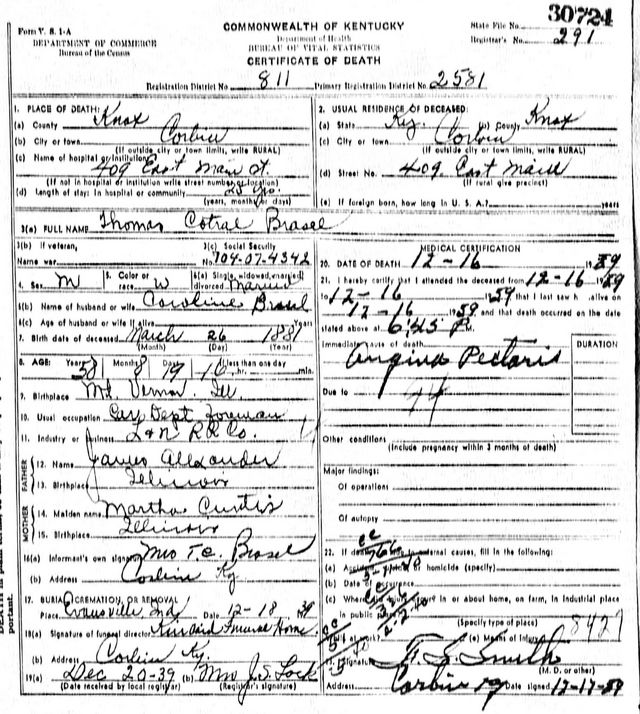 30724
Form V. S. 1-A
COMMONWEALTH OF KENTUCKY
State File No.
DEPARTMENT OF COMMERCE
Bureau of the Census
Department of Health
BUREAU OF VITAL STATISTICS
CERTIFICATE OF DEATH
Registrar's No. 291
Registration District No. 811 Primary Registration District No. 2581
1. PLACE OF DEATH:
(a) County Knox
(b) City or town Corbin
(If outside city or town limits, write RURAL)
(c) Name of hospital or institution:
409 East Main St.
(If not in hospital or institution write street number or location)
(d) Length of stay: In hospital or community 25 yrs.
(years, months or days)
2. USUAL RESIDENCE OF DECEASED:
(a) State Ky. (b) County Knox
(c) City or town Corbin
(If outside city or town limits, write RURAL)
(d) Street No. 409 East Main
(If rural give precinct)
(e) If foreign born, how long in U. S. A.? years
3(a) FULL NAME Thomas Cotral Brasel
3(b) If veteran,
Name war
3(c) Social Security
No. 704-07-4342
4. Sex M
5. Color or
race W
6(a) Single, widowed, married,
divorced Married
6(b) Name of husband or wife Caroline Brasel
6(c) Age of husband or wife if alive Years
7. Birth date of deceased March 26 1881
(Month) (Day) (Year)
8. AGE: Years Months Days If less than one day
58 8 19 hr. min.
9. Birthplace Mt. Vernon, Ill
10. Usual occupation Car Dept Foreman
11. Industry or business L & N R.R. Co.
FATHER
12. Name James Allexander
13. Birthplace Illinois
MOTHER
14. Maiden name Martha Curtis
15. Birthplace Illinois
16(a) Informant's own signature Mrs T.C. Brasel
(b) Address Corbin Ky
17. BURIAL, CREMATION, OR REMOVAL
Place Evansville, Ind Date 12-18 39
18(a) Signature of funeral director Kincaid Funeral Home
(b) Address Corbin Ky.
19(a) Dec 20-39 (b) Mrs J.S. Lock
(Date received by local registrar) (Registrar's signature)
MEDICAL CERTIFICATION
20. DATE OF DEATH 12-16 1939
21. I hereby certify that I attended the deceased from 12-16 1939
to 12-16 1939 that I last saw h alive on
12-16 1939 and that death occurred on the date
stated above at 6:45 P.
Immediate cause of death
DURATION
Angina Pectoris
Due to 94
Other conditions
(Include pregnancy within 3 months of death)
Major findings:
Of operations
Of autopsy
22. If death due to external causes, fill in the following:
(a) Accident, homicide (specify)
(b) Date of occurrence
(c) Where did injury occur? in or about home, on farm, in industrial place
in public
(Specify type of place)
While at work? (e) Means of injury 8427
23. Signature F. S. Smith
(M. D. or other)
Address Corbin Ky Date signed 12-17-39
DEATH in plain terms, so
portant.